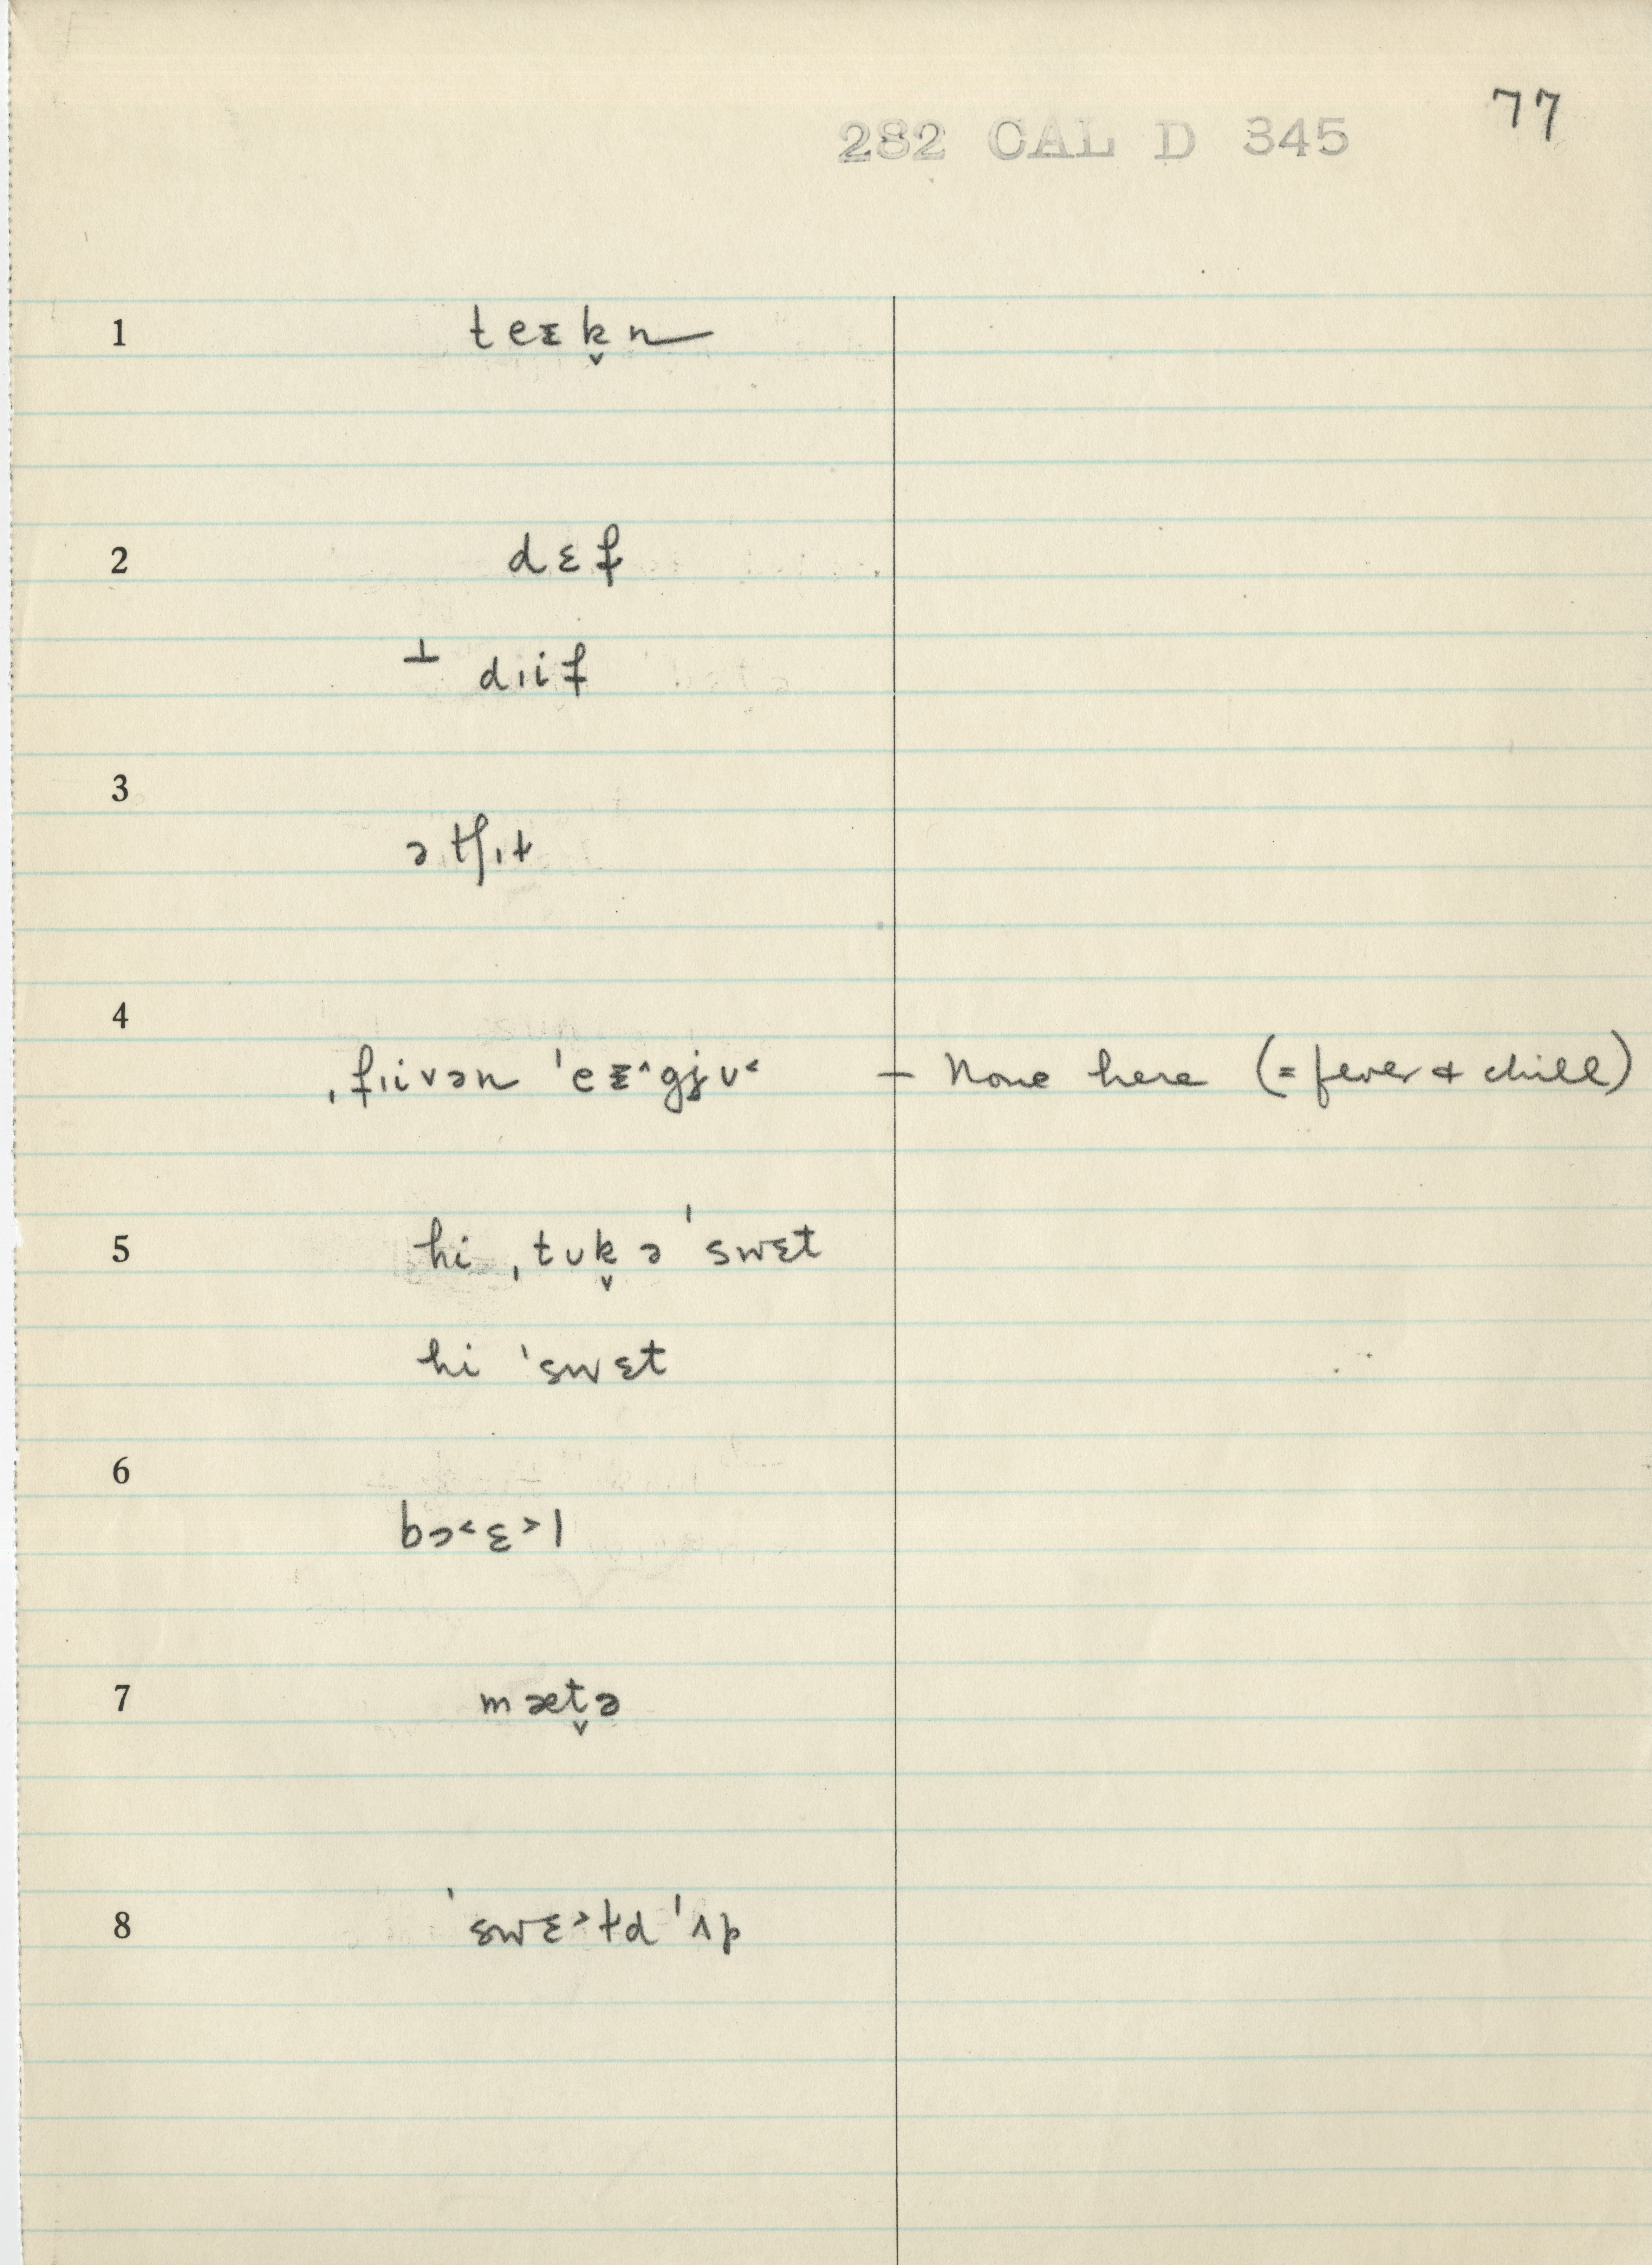 77
282 CAL D 345
1 teᵻk̬n
2 dɛf
⊥ dɪif
3 ətʃɪt
4 ˌfɪivən ˈeᵻ^gjʊ˂ — None here (= fever & chill)
5 hi ˌtʊk̬ ə ˈswɛt
hi ˈswɛt
6 bɔ˂ɛ˃l
7 mæt̬ə
8 ˈswɛ˃td ˈʌp